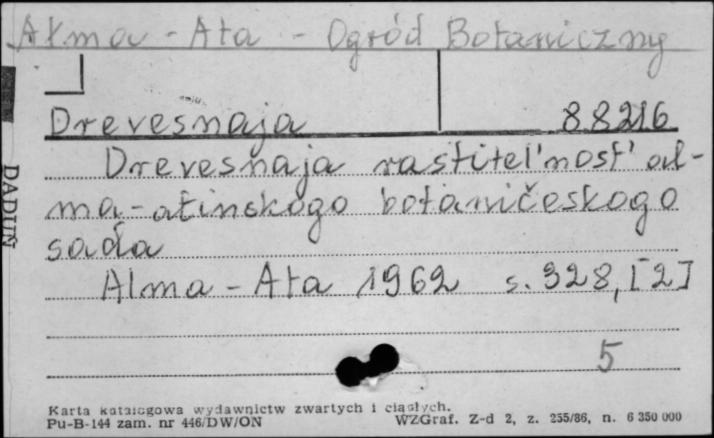 Ałma - Ata - Ogród Botaniczny
Drevesnaja 88216
Drevesnaja rastitel'nost' al-
ma-atinskogo botaničeskogo
sada
Alma - Ata 1962 s. 328, [2]
5
DADUŃ
Karta katalogowa wydawnictw zwartych i ciągłych.
Pu-B-144 zam. nr 446/DW/ON WZGraf. Z-d 2, z. 255/86, n. 6 350 000